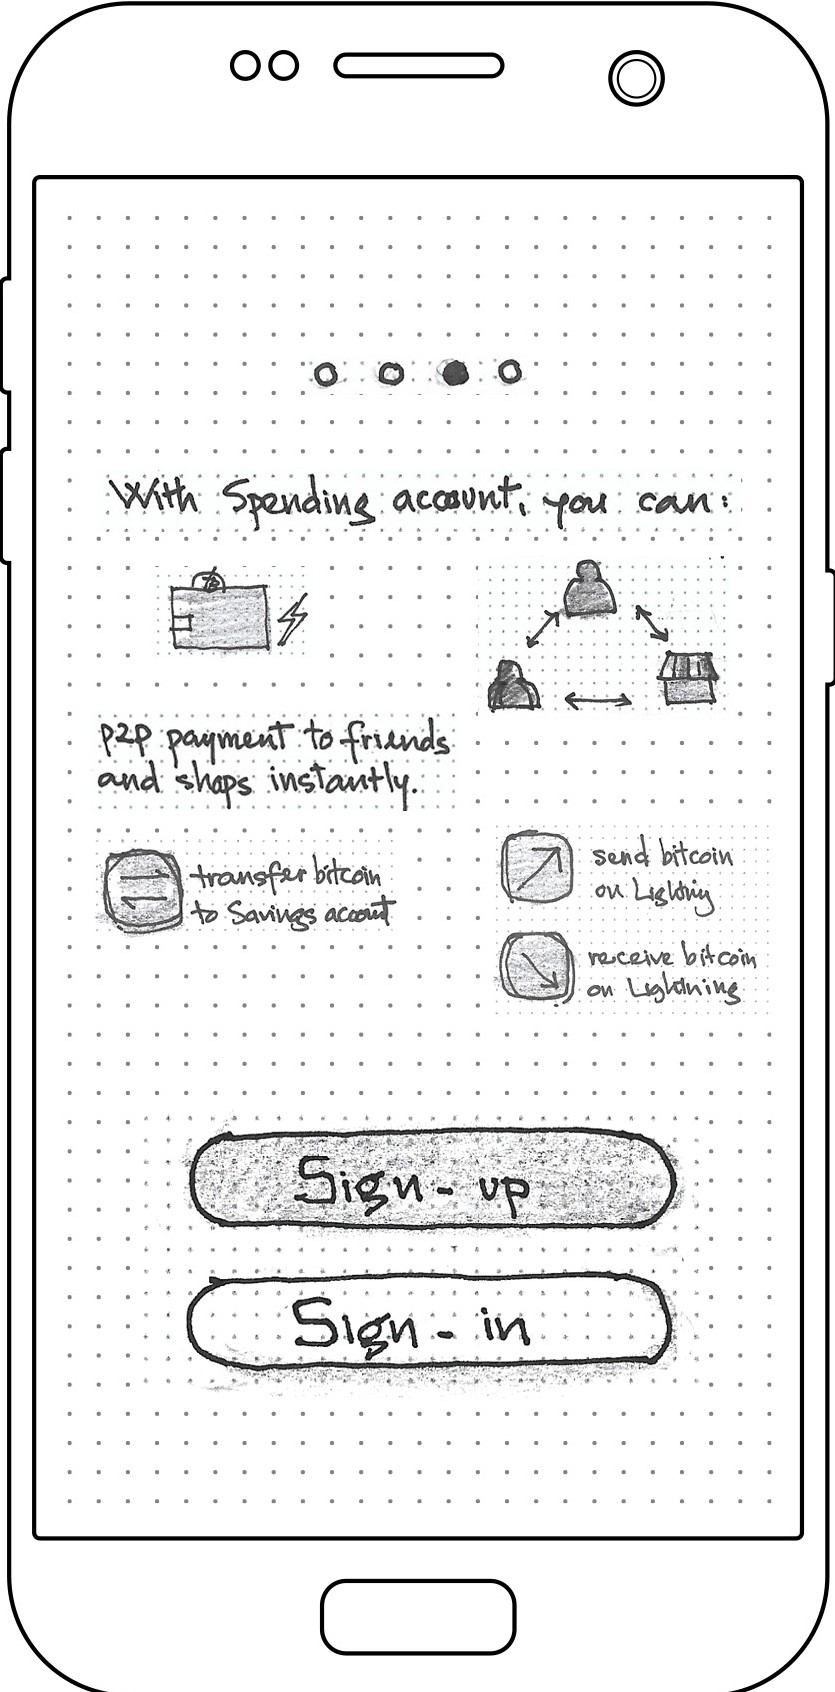 With Spending account, you can:
₿
p2p payment to friends
and shops instantly.
transfer bitcoin
to Savings account
send bitcoin
on Lightniy
receive bitcoin
on Lightning
Sign-up
Sign-in